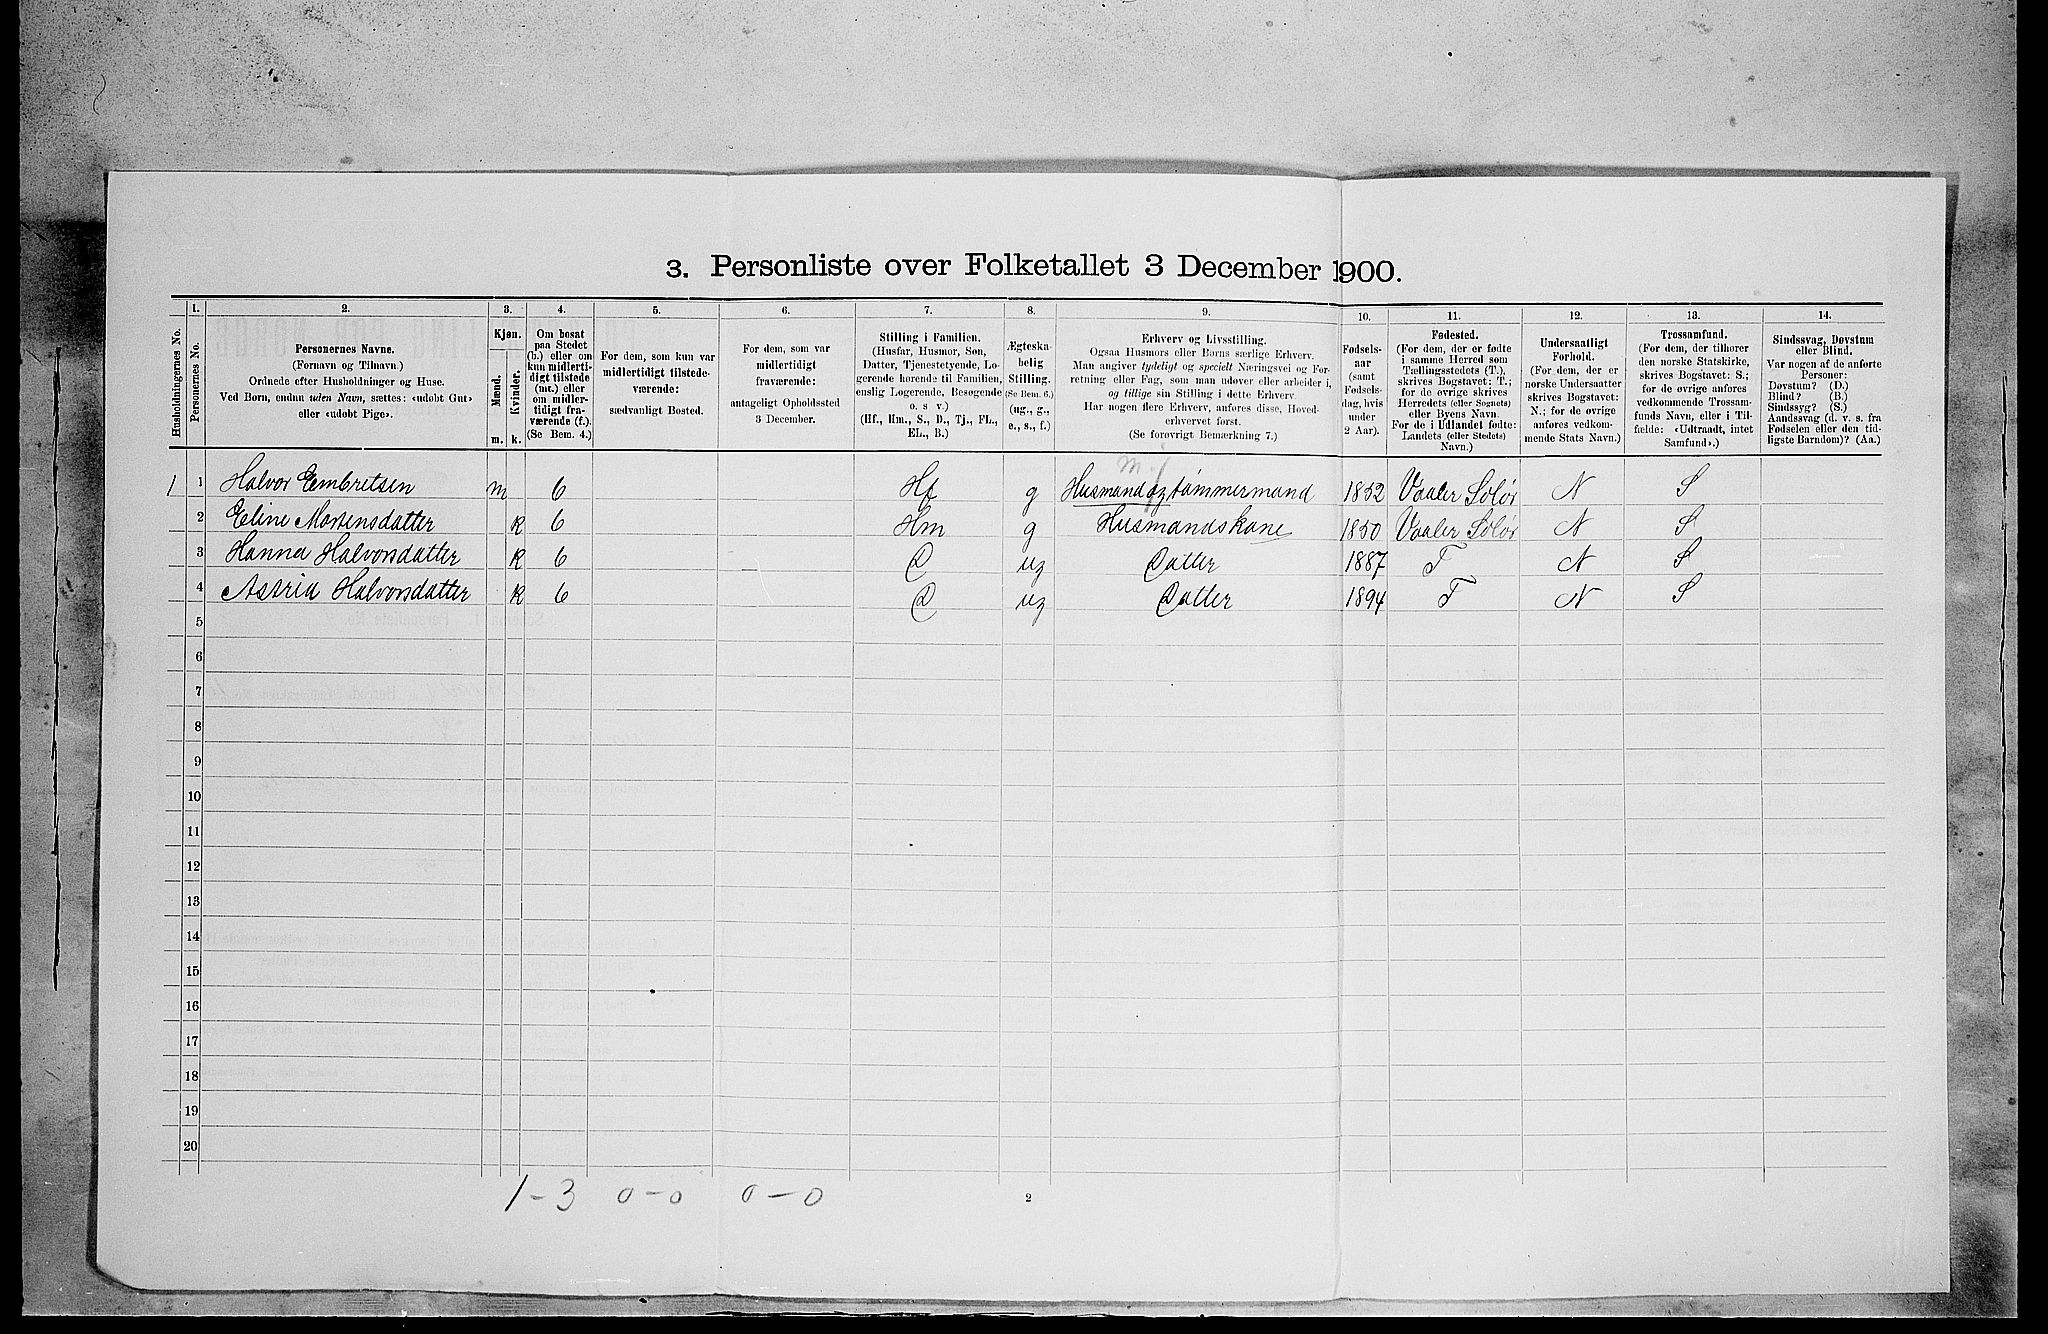 3. Personliste over Folketallet 3 December 1900.
1. 2. 3. 4. 5. 6. 7. 8. 9. 10. 11. 12. 13. 14.
Husholdningernes No.
Personernes No.
Personernes Navne.
(Fornavn og Tilnavn.)
Ordnede efter Husholdninger og Huse.
Ved Børn, endnu uden Navn, sættes: «udøbt Gut»
eller «udøbt Pige».
Kjøn.
Mænd.
Kvinder.
m. k.
Om bosat
paa Stedet
(b.) eller om
kun midlerti-
digt tilstede
(mt.) eller
om midler-
tidigt fra-
værende (f.).
(Se Bem. 4.)
For dem, som kun var
midlertidigt tilstede-
værende:
sædvanligt Bosted.
For dem, som var
midlertidigt
fraværende:
antageligt Opholdssted
3 December.
Stilling i Familien.
(Husfar, Husmor, Søn,
Datter, Tjenestetyende, Lo-
gerende hørende til Familien,
enslig Logerende, Besøgende
o. s v.)
(Hf., Hm., S., D., Tj., FL.,
EL., B.)
Ægteska-
belig
Stilling.
(Se Bem. 6.)
(ug., g.,
e., s., f.)
Erhverv og Livsstilling.
Ogsaa Husmors eller Børns særlige Erhverv.
Man angiver tydeligt og specielt Næringsvei og For-
retning eller Fag, som man udøver eller arbeider i,
og tillige sin Stilling i dette Erhverv.
Har nogen flere Erhverv, anføres disse, Hoved-
erhvervet først.
(Se forøvrigt Bemærkning 7.)
Fødsels-
aar
(samt
Fødsels-
dag, hvis
under
2 Aar).
Fødested.
(For dem, der er fødte
i samme Herred som
Tællingsstedets (T.),
skrives Bogstavet: T.;
for de øvrige skrives
Herredets (eller Sognets)
eller Byens Navn.
For de i Udlandet fødte:
Landets (eller Stedets)
Navn.)
Undersaatligt
Forhold.
(For dem, der er
norske Undersaatter
skrives Bogstavet:
N.; for de øvrige
anføres vedkom-
mende Stats Navn.)
Trossamfund.
(For dem, der tilhører
den norske Statskirke,
skrives Bogstavet: S.;
for de øvrige anføres
vedkommende Trossam-
funds Navn, eller i Til-
fælde: «Udtraadt, intet
Samfund».)
Sindssvag, Døvstum
eller Blind.
Var nogen af de anførte
Personer:
Døvstum? (D.)
Blind? (B.)
Sindssyg? (S.)
Aandssvag (d. v. s. fra
Fødselen eller den tid-
ligste Barndom)? (Aa.)
1 1 Halvor Embretsen m b Hf g Husmand og tømmermand 1852 Vaaler Solør N S
2 Eline Mortensdatter k b Hm g Husmandskone 1850 Vaaler Solør N S
3 Hanna Halvorsdatter k b D ug Datter 1887 T N S
4 Astrid Halvorsdatter k b D ug Datter 1894 T N S
5
6
7
8
9
10
11
12
13
14
15
16
17
18
19
20
1-3 0-0 0-0
2